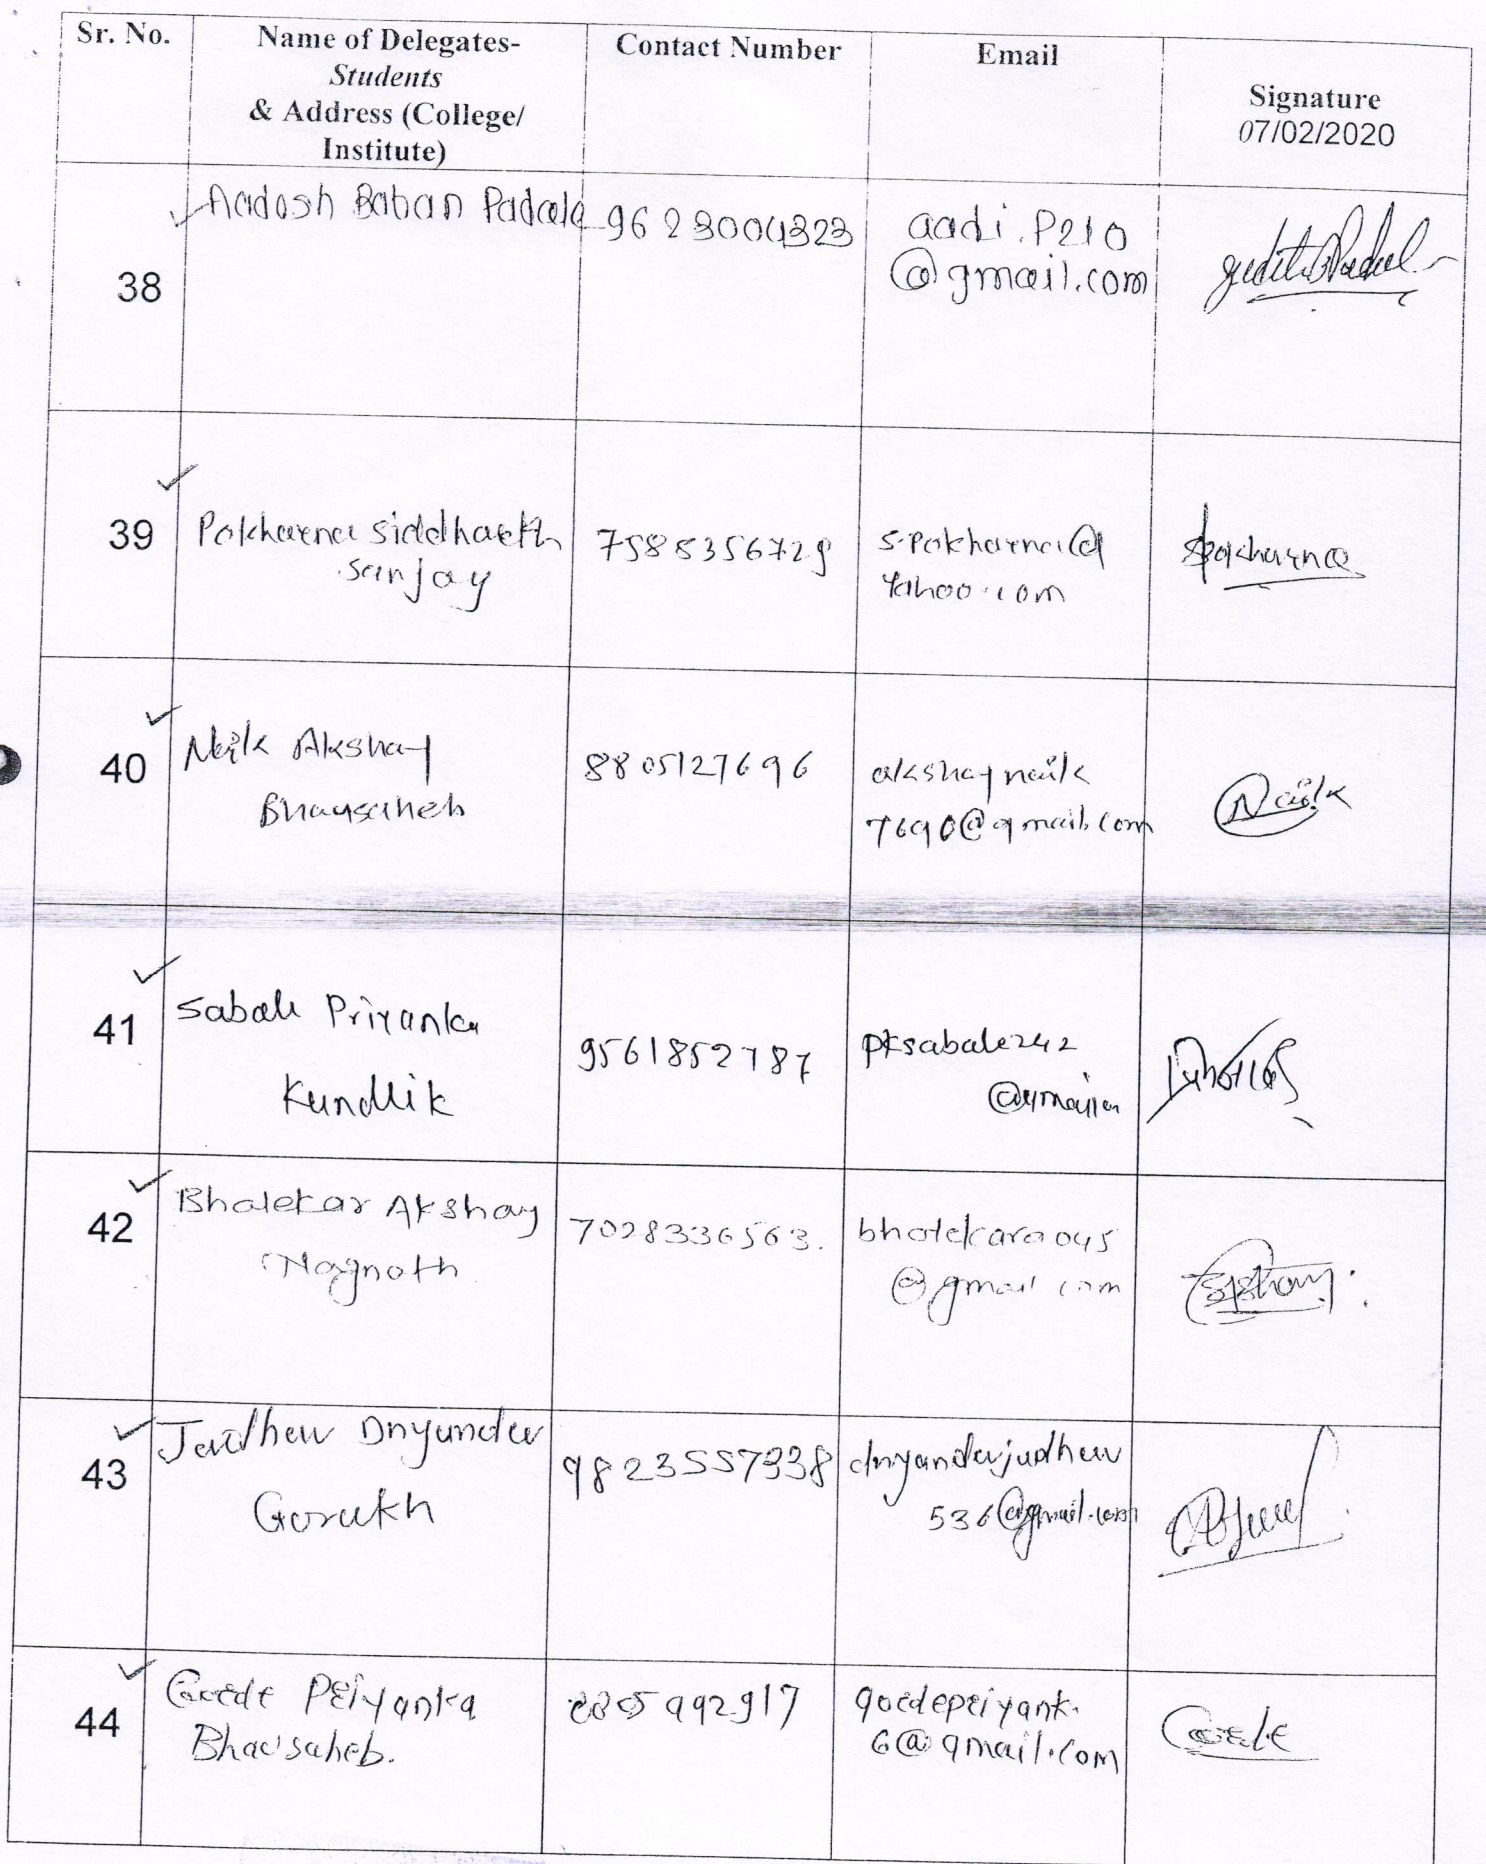 Sr. No.
Name of Delegates-
Students
& Address (College/
Institute)
Contact Number
Email
Signature
07/02/2020
38
Aadosh Baban Padale
9623004323
aadi.P210
@gmail.com
39
Pokharna Siddharth
Sanjay
7588356729
s.pokharna@
Yahoo.com
Spokharna
40
Naik Akshay
Bhausaheb
8805127696
akshaynaik
7690@gmail.com
Naik
41
Sabale Priyanka
Kundlik
9561852787
pksabale242
42
Bhalekar Akshay
Nagnath
7028336563.
bhalekara045
@gmail com
43
Jadhav Dnyandev
Gorakh
9823557338
dnyandevjadhav
536@gmail.com
44
Garde Priyanka
Bhausaheb.
8805992917
gardepriyank.
6@gmail.com